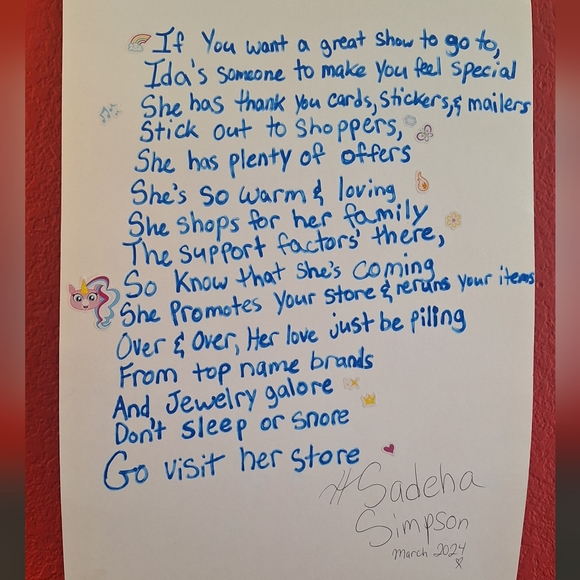 If You want a great show to go to,
Ida's someone to make you feel special
She has thank you cards, stickers, & mailers
Stick out to shoppers,
She has plenty of offers
She's so warm & loving
She shops for her family
The support factors' there,
So Know that she's coming
She Promotes your store & reruns your items
Over & Over, Her love just be piling
From top name brands
And Jewelry galore
Don't sleep or snore
Go visit her store
#Sadeha
Simpson
March 2024